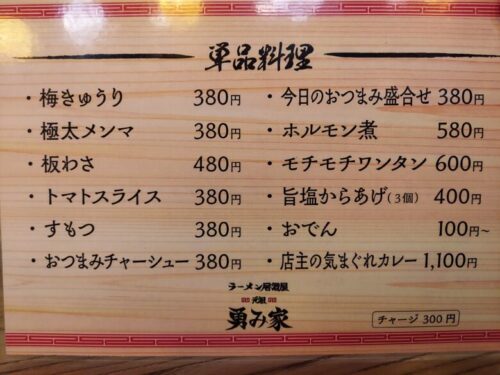 単品料理
・梅きゅうり 380円
・極太メンマ 380円
・板わさ 480円
・トマトスライス 380円
・すもつ 380円
・おつまみチャーシュー 380円
・今日のおつまみ盛合せ 380円
・ホルモン煮 580円
・モチモチワンタン 600円
・旨塩からあげ(3個) 400円
・おでん 100円~
・店主の気まぐれカレー 1,100円
ラーメン居酒屋
元祖
勇み家
チャージ 300円